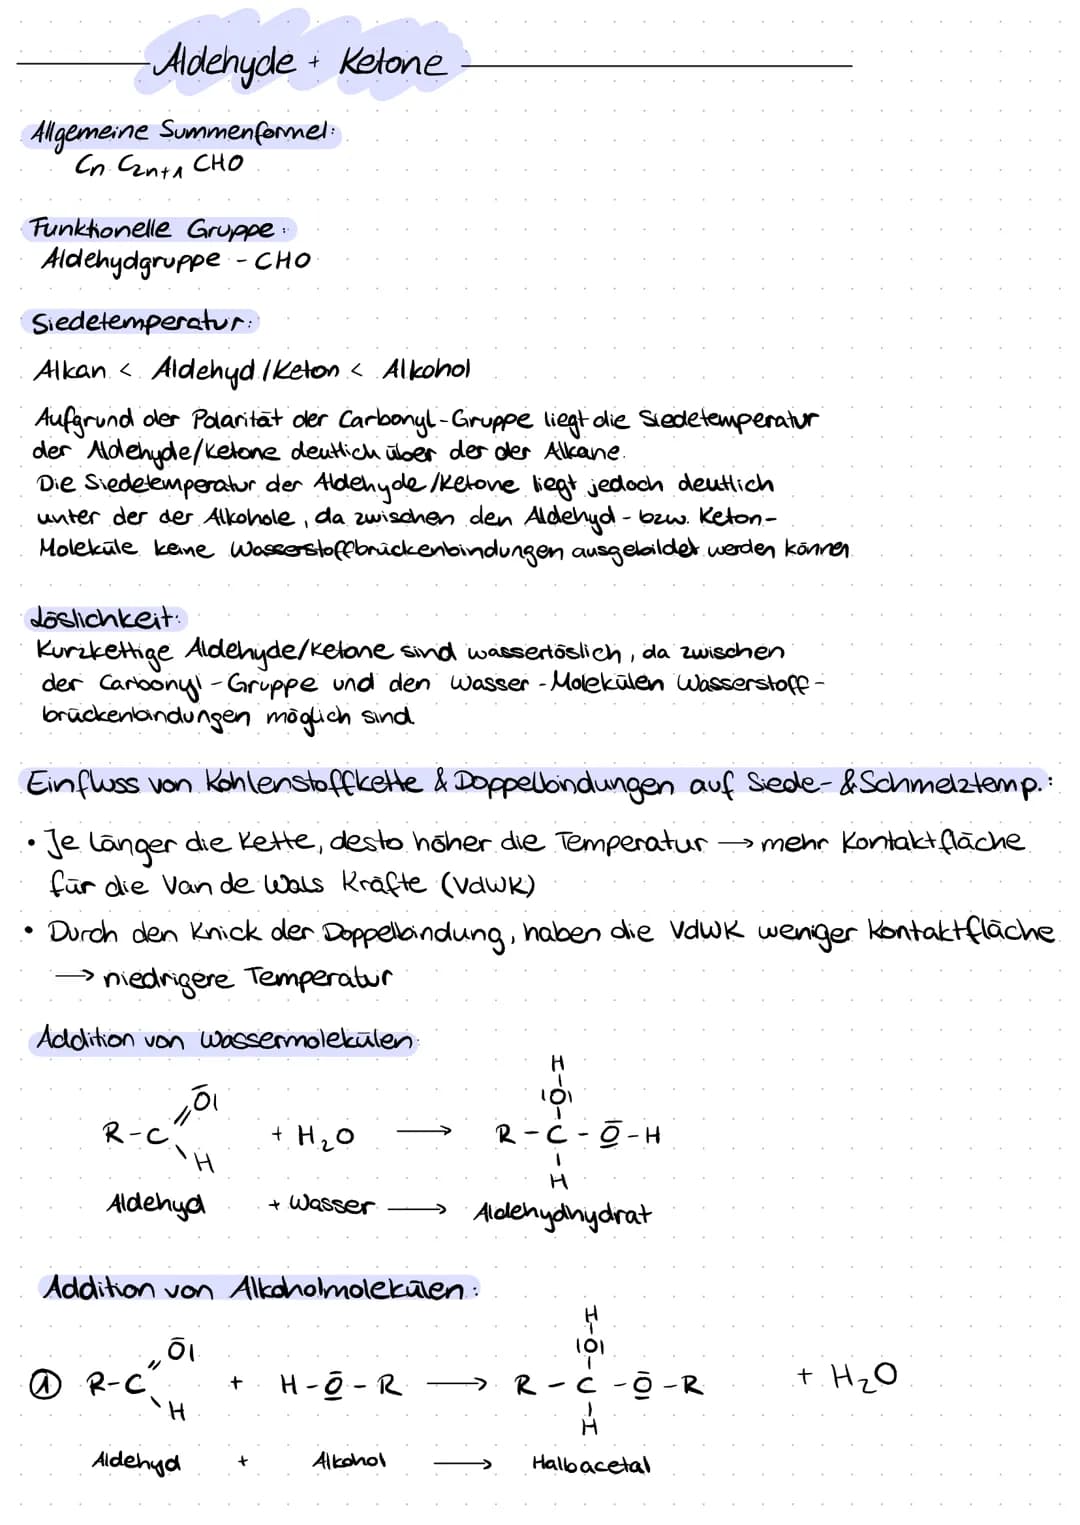 Aldehyde + Ketone
Allgemeine Summenformel:
Cn C2n+1 CHO
Funktionelle Gruppe:
Aldehydgruppe - CHO
Siedetemperatur:
Alkan < Aldehyd/Keton < Alkohol
Aufgrund der Polarität der Carbonyl-Gruppe liegt die Siedetemperatur
der Aldehyde/Ketone deutlich über der der Alkane.
Die Siedetemperatur der Aldehyde/Ketone liegt jedoch deutlich
unter der der Alkohole, da zwischen den Aldehyd- bzw. Keton-
Moleküle keine Wasserstoffbrückenbindungen ausgebildet werden können
Löslichkeit:
Kurzkettige Aldehyde/Ketone sind wasserlöslich, da zwischen
der Carbonyl-Gruppe und den Wasser-Molekülen Wasserstoff-
brückenbindungen möglich sind
Einfluss von Kohlenstoffkette & Doppelbindungen auf Siede- & Schmelztemp.:
• Je länger die Kette, desto höher die Temperatur → mehr Kontaktfläche
für die Van de Wals Kräfte (VdWK)
• Durch den Knick der Doppelbindung, haben die VdWK weniger Kontaktfläche
→ niedrigere Temperatur
Addition von Wassermolekülen:
H
Ō| |O|
R-C + H₂O → R - C - O̲̅ - H
H H
Aldehyd + Wasser → Aldehydhydrat
Addition von Alkoholmolekülen:
H
Ō| |O|
① R-C + H-O̲̅-R → R - C - O̲̅ - R + H₂O
H H
Aldehyd + Alkohol → Halbacetal